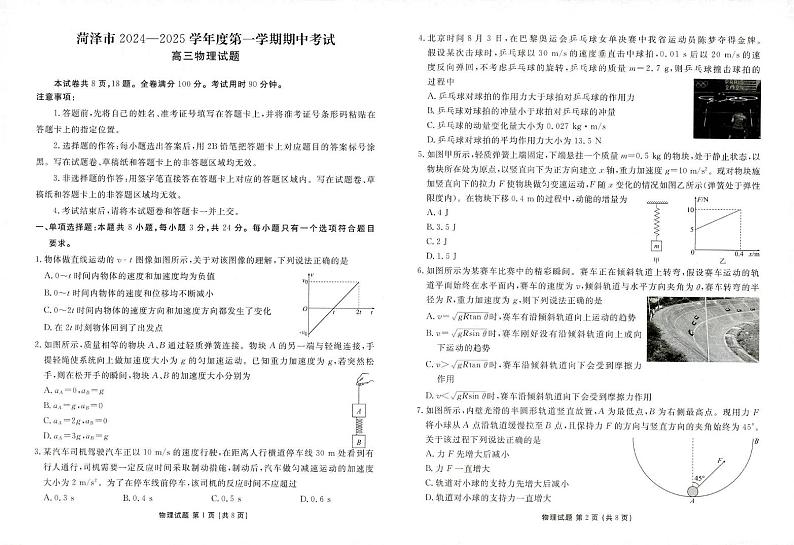 菏泽市 2024—2025 学年度第一学期期中考试
高三物理试题
本试卷共 8 页,18 题。全卷满分 100 分。考试用时 90 分钟。
注意事项:
1. 答题前,先将自己的姓名、准考证号填写在答题卡上,并将准考证号条形码粘贴在
答题卡上的指定位置。
2. 选择题的作答:每小题选出答案后,用 2B 铅笔把答题卡上对应题目的答案标号涂
黑。写在试题卷、草稿纸和答题卡上的非答题区域均无效。
3. 非选择题的作答:用签字笔直接答在答题卡上对应的答题区域内。写在试题卷、草
稿纸和答题卡上的非答题区域均无效。
4. 考试结束后,请将本试题卷和答题卡一并上交。
一、单项选择题:本题共 8 小题,每小题 3 分,共 24 分。每小题只有一个选项符合题目
要求。
1. 物体做直线运动的 v-t 图像如图所示,关于对该图像的理解,下列说法正确的是
A. 0~t 时间内物体的速度和加速度均为负值
B. 0~t 时间内物体的速度和位移均不断减小
C. 0~2t 时间内物体的速度方向和加速度方向都发生了变化
D. 在 2t 时刻物体回到了出发点
v
v₀
O
t
2t
t
-v₀
2. 如图所示,质量相等的物块 A、B 通过轻质弹簧连接。物块 A 的另一端与轻绳连接,手
提轻绳使系统向上做加速度大小为 g 的匀加速运动。已知重力加速度为 g,若突然松
手,则在松开手的瞬间,物块 A、B 的加速度大小分别为
A. aA=0,aB=g
B. aA=g,aB=0
C. aA=2g,aB=0
D. aA=3g,aB=g
A
B
3. 某汽车司机驾驶汽车正以 10 m/s 的速度行驶,在距离人行横道停车线 30 m 处看到有
行人通行,司机需要一定反应时间采取制动措施,制动后,汽车做匀减速运动的加速度
大小为 2 m/s²。为了在停车线前停车,该司机的反应时间不应超过
A. 0.3 s B. 0.4 s C. 0.5 s D. 0.6 s
物理试题 第 1 页 (共 8 页)
4. 北京时间 8 月 3 日,在巴黎奥运会乒乓球女单决赛中我省运动员陈梦夺得金牌。
假设某次击球时,乒乓球以 30 m/s 的速度垂直击中球拍,0.01 s 后以 20 m/s 的速
度反向弹回,不考虑乒乓球的旋转,乒乓球的质量 m=2.7 g,则乒乓球撞击球拍的
过程中
A. 乒乓球对球拍的作用力大于球拍对乒乓球的作用力
B. 乒乓球对球拍的冲量小于球拍对乒乓球的冲量
C. 乒乓球的动量变化量大小为 0.027 kg·m/s
D. 乒乓球对球拍的平均作用力大小为 13.5 N
5. 如图甲所示,轻质弹簧上端固定,下端悬挂一个质量 m=0.5 kg 的物块,处于静止状态,以
物块所在处为原点,以竖直向下为正方向建立 x 轴,重力加速度 g=10 m/s²。现对物块施
加竖直向下的拉力 F 使物块做匀变速运动,F 随 x 变化的情况如图乙所示(弹簧处于弹性
限度内)。在物块下移 0.4 m 的过程中,动能的增量为
A. 4 J
B. 3.5 J
C. 2 J
D. 1.5 J
m
甲
F/N
10
5
0
0.4 x/m
乙
6. 如图所示为某赛车比赛中的精彩瞬间。赛车正在倾斜轨道上转弯,假设赛车运动的轨
道平面始终在水平面内,赛车的速度为 v,倾斜轨道与水平方向夹角为 θ,赛车转弯的半
径为 R,重力加速度为 g,则下列说法正确的是
A. v=√gRtan θ时,赛车有沿倾斜轨道向上运动的趋势
B. v=√gRsin θ时,赛车刚好没有沿倾斜轨道向上或向
下运动的趋势
C. v>√gRtan θ时,赛车沿倾斜轨道向下会受到摩擦力
作用
D. v<√gRsin θ时,赛车沿倾斜轨道向下会受到摩擦力作用
7. 如图所示,内壁光滑的半圆形轨道竖直放置,A 为最低点,B 为右侧最高点。现用力 F
将小球从 A 点沿轨道缓慢拉至 B 点,且保持力 F 的方向与竖直方向的夹角始终为 45°。
关于该过程下列说法正确的是
A. 力 F 先增大后减小
B. 力 F 一直增大
C. 轨道对小球的支持力先增大后减小
D. 轨道对小球的支持力一直增大
B
F
45°
A
物理试题 第 2 页 (共 8 页)